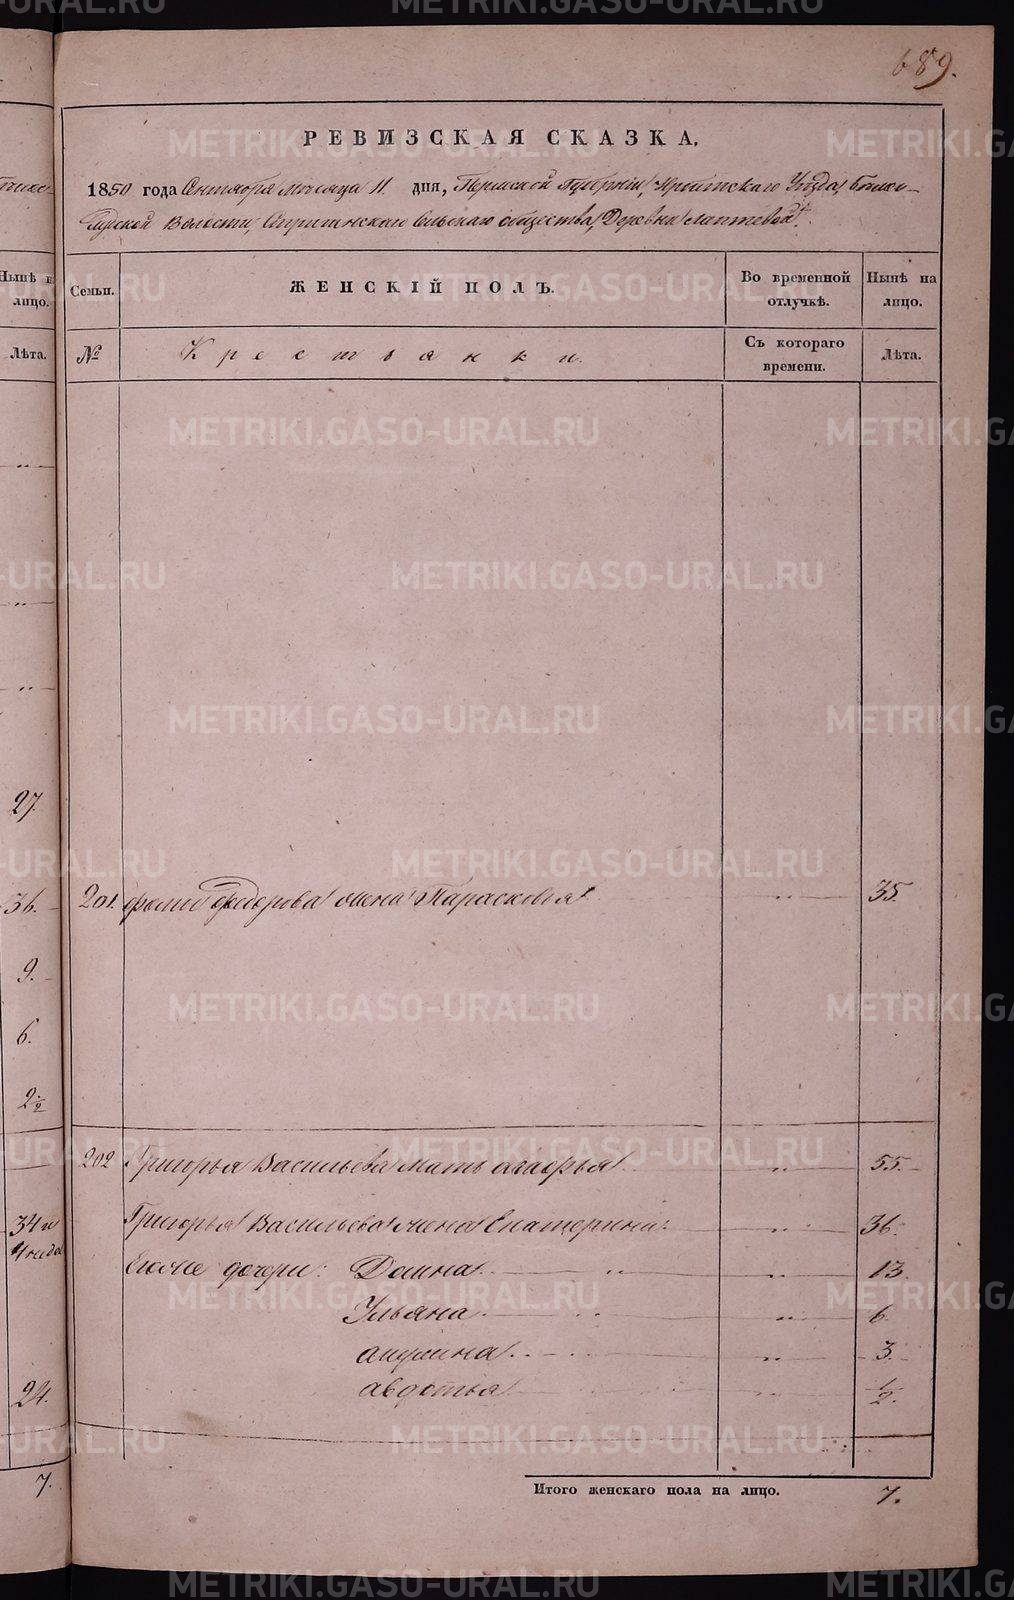 689.
РЕВИЗСКАЯ СКАЗКА.
1850 года Сентября месяца 11 дня, Пермской Губернии, Уезда,
Волости, сельскаго общества, Деревни Лаптевой.
Ныне на лицо.
Семьи.
ЖЕНСКІЙ ПОЛЪ.
Во временной отлучкѣ.
Нынѣ на лицо.
Лѣта.
№
Крестьянки.
Съ котораго времени.
Лѣта.
27.
36.
201. Федорова жена Парасковья 35.
9.
6.
2 1/2
202 Григорья Васильева мать 55.
34 и
Григорья Васильева жена Екатерина 36.
Его же дочери: Домна 13
Ульяна 6
3.
24.
авдотья 1/2.
7.
Итого женскаго пола на лицо. 7.
METRIKI.GASO-URAL.RU